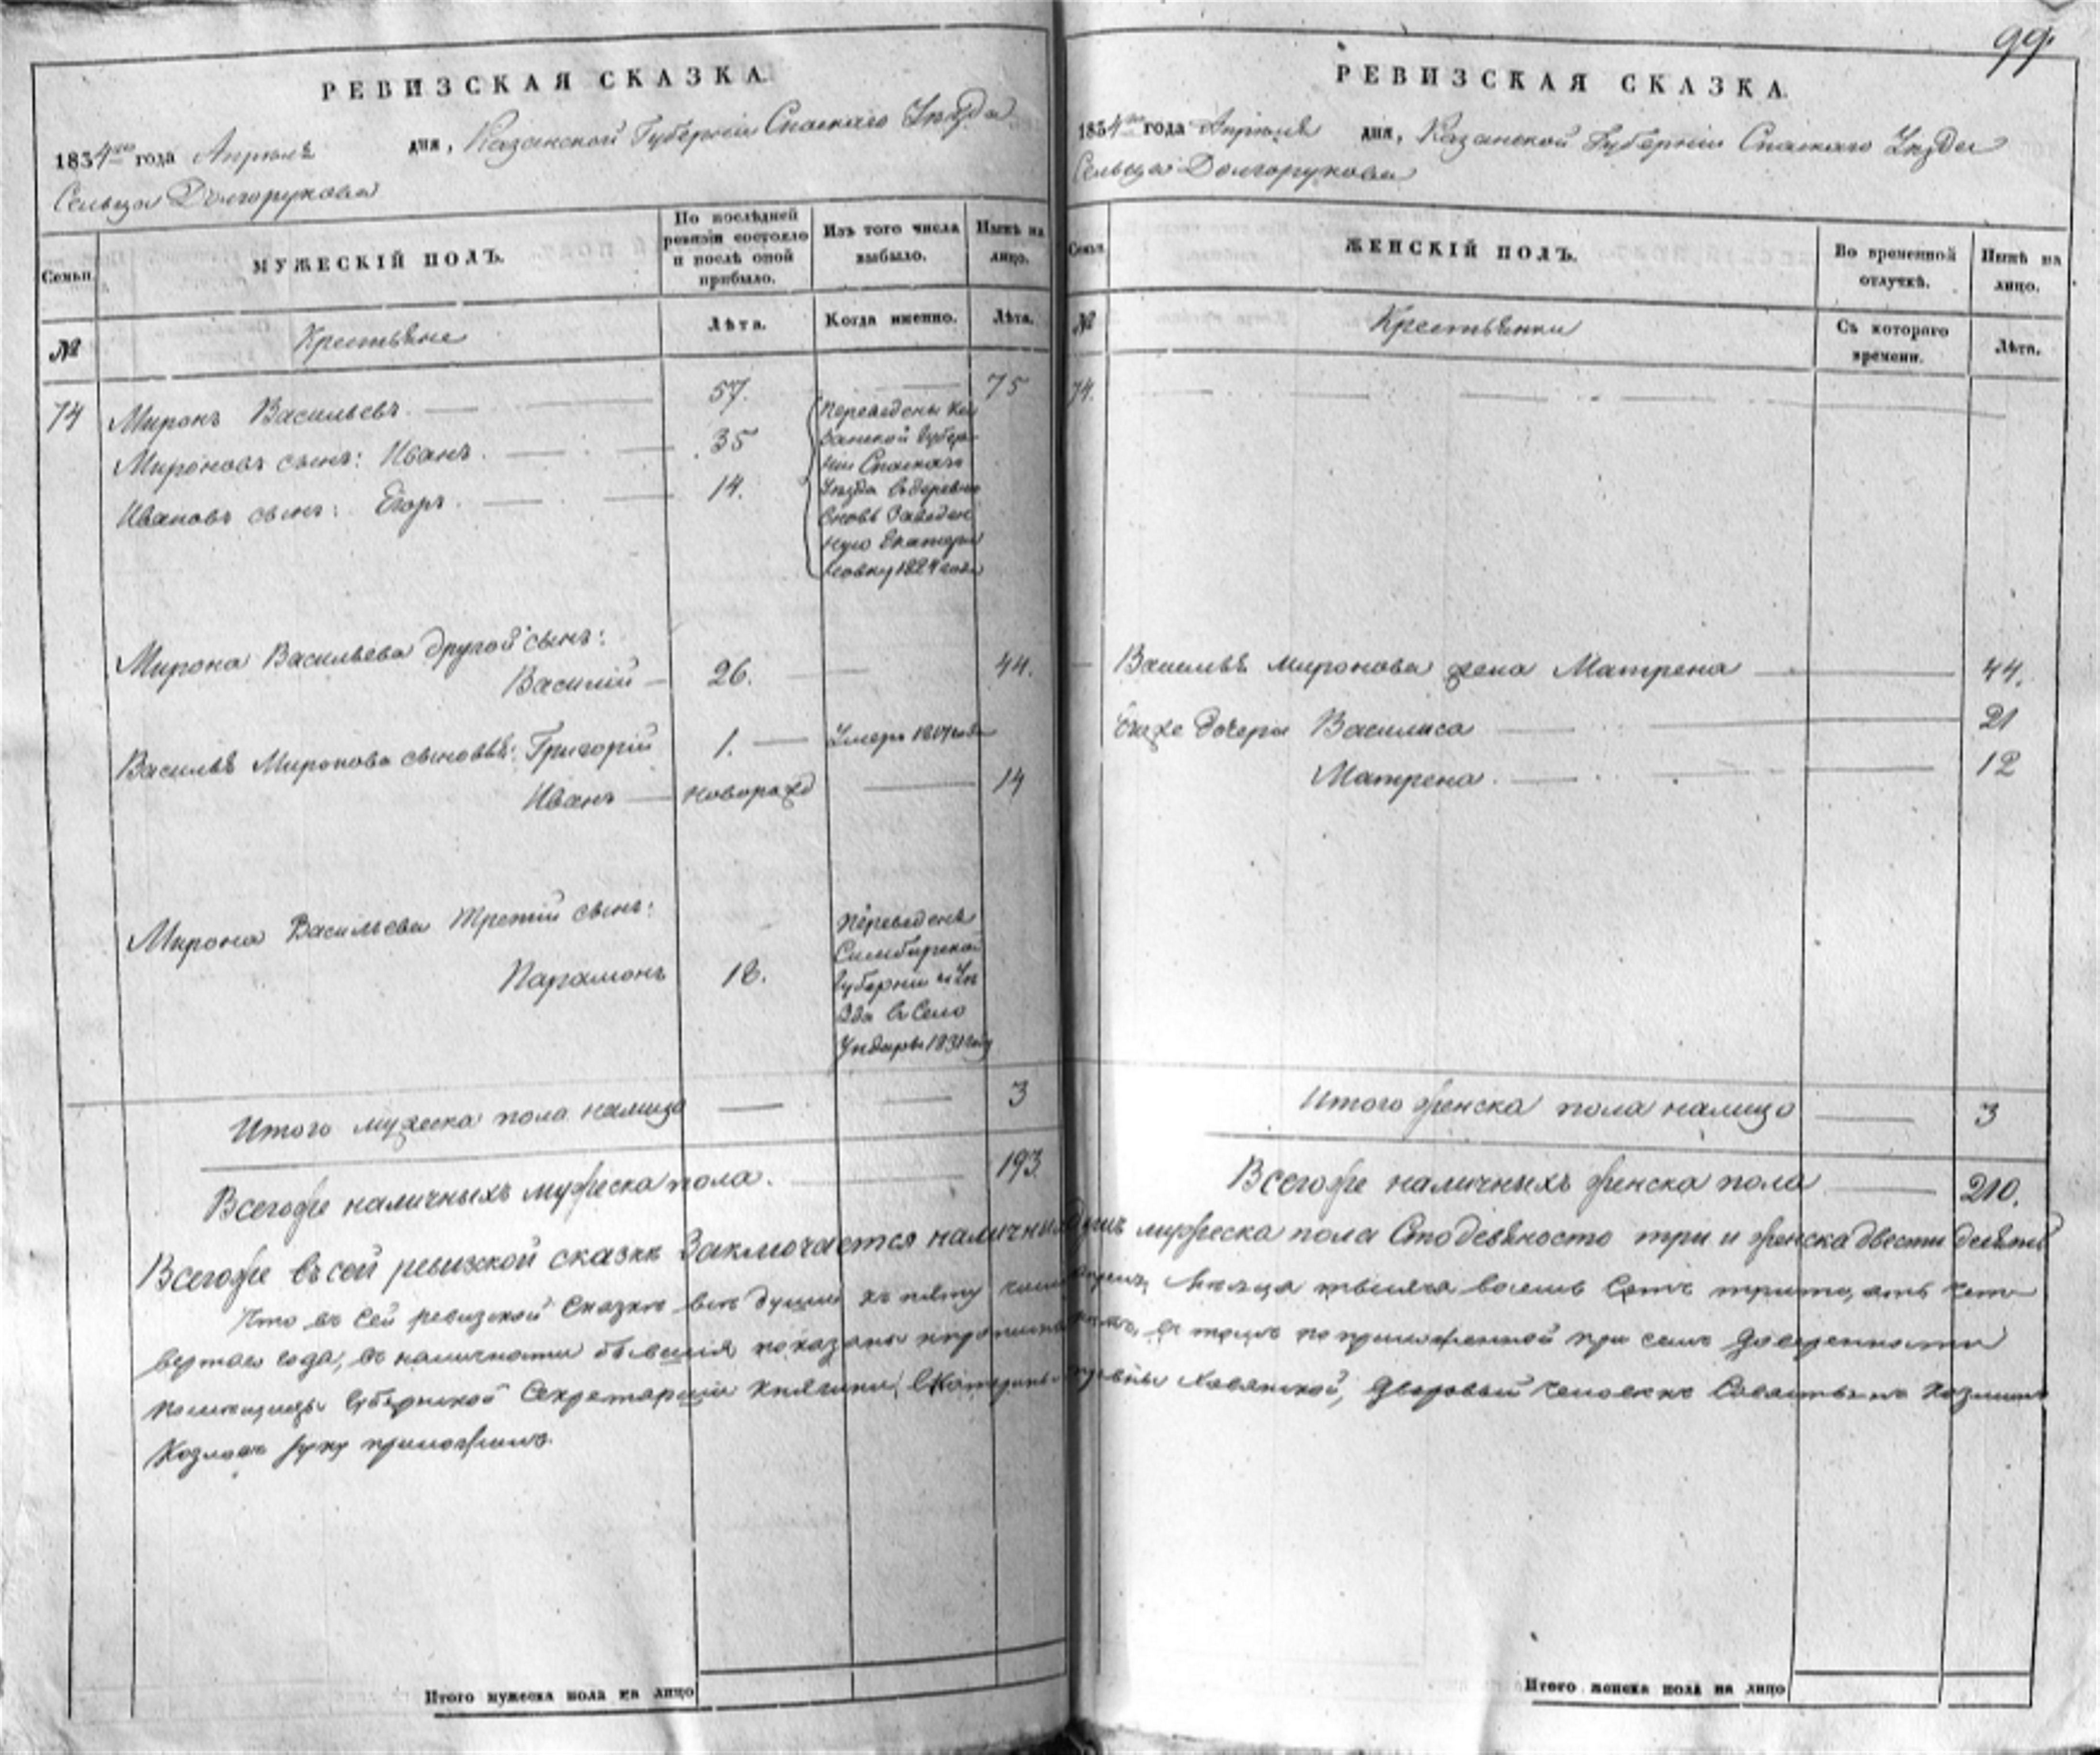 РЕВИЗСКАЯ СКАЗКА.
1834го года Апреля дня, Казанской Губернiи Спаскаго Уѣзда
Сельца Долгорукова
Семьи.
МУЖЕСКIЙ ПОЛЪ.
По послѣдней ревизiи состояло и послѣ оной прибыло.
Изъ того числа выбыло.
Нынѣ на лицо.
№
Крестьяне
Лѣта.
Когда именно.
Лѣта.
74 Миронъ Васильевъ. 57. 75
Мироновъ сынъ: Иванъ. 35
Ивановъ сынъ: Егоръ. 14.
Переведены Ка
занской Губер
нiи Спаскаго
Уѣзда въ деревню
вновь Заведен
ную Екатери
новку 1824 года
Мирона Васильева другой сынъ:
Василiй 26. 44.
Василья Миронова сыновья: Григорiй 1. Умеръ
Иванъ новорожд 14
Мирона Васильева третiй сынъ:
Парамонъ 18.
Переведенъ
Симбирской
Губернiи и Уѣ
зда въ Село
Ундоры 1831 году
Итого мужеска пола налицо 3
Всегоже наличныхъ мужеска пола. 193
99.
РЕВИЗСКАЯ СКАЗКА.
1834го года Апреля дня, Казанской Губернiи Спаскаго Уѣзда
Сельца Долгорукова
Семьи.
ЖЕНСКIЙ ПОЛЪ.
Во временной отлучкѣ.
Нынѣ на лицо.
№
Крестьянки
Съ котораго времени.
Лѣта.
74.
Василья Миронова жена Матрена 44.
Ехже дочери Василиса 21
Матрена. 12
Итого женска пола налицо 3
Всегоже наличныхъ женска пола 210.
Всегоже въ сей ревизкой сказкѣ Заключается наличныхъ душъ мужеска пола Сто девяносто три и женска двести десять
Что въ сей ревизской Сказкѣ всѣ души къ числу Апреля Мѣсяца тысяча восемь Сотъ тритцать чет
вертаго года, въ наличности бывшiя показаны и въ томъ по приложенной при семъ доверенности
помещицы Губернской Секретарши Княгини Екатерины Хованской, Дворовый человекъ
Козловъ руку приложилъ.
Итого мужеска пола на лицо
Итого женска пола на лицо